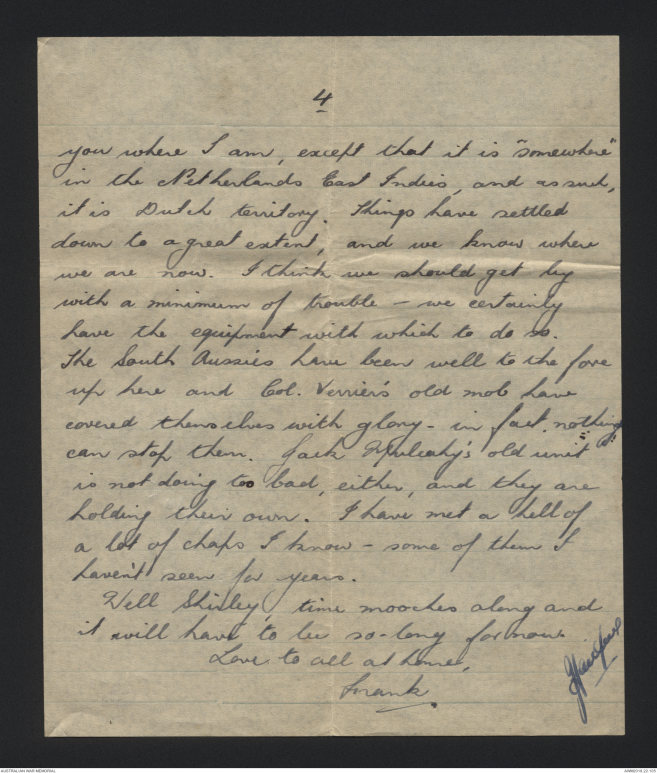 4
you where I am, except that it is "somewhere"
in the Netherlands East Indies, and as such,
it is Dutch territory. Things have settled
down to a great extent, and we know where
we are now. I think we should get by
with a minimum of trouble - we certainly
have the equipment with which to do so.
The South Aussies have been well to the fore
up here and Col. Verrier's old mob have
covered themselves with glory - in fact, nothing
can stop them. Jack Mulcahy's old unit
is not doing too bad, either, and they are
holding their own. I have met a hell of
a lot of chaps I know - some of them I
haven't seen for years.
Well Shirley, time mooches along and
it will have to be so-long for now.
Love to all at home,
Frank.
AUSTRALIAN WAR MEMORIAL